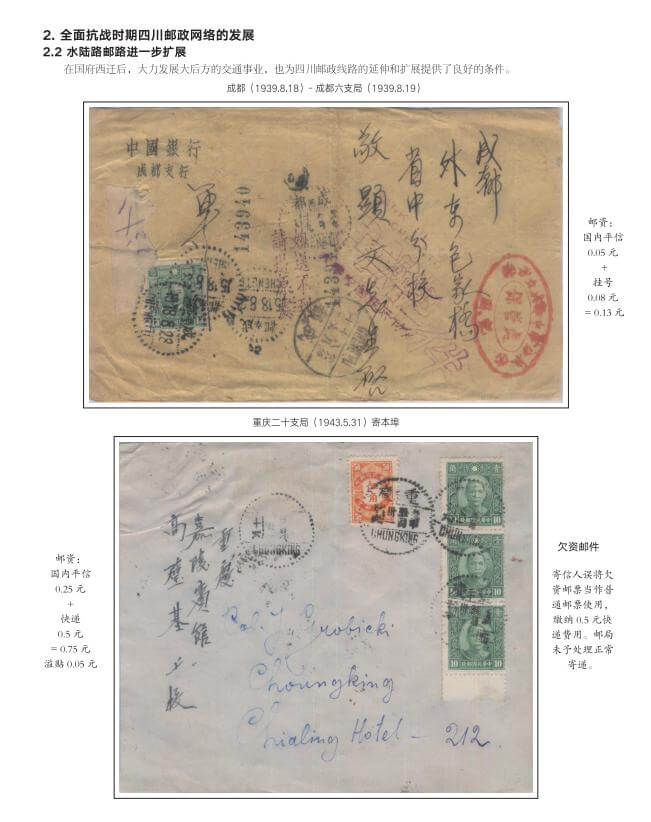 2. 全面抗战时期四川邮政网络的发展
2.2 水陆路邮路进一步扩展
在国府西迁后，大力发展大后方的交通事业，也为四川邮政线路的延伸和扩展提供了良好的条件。
成都（1939.8.18）- 成都六支局（1939.8.19）
中國銀行
成都支行
143940
成都
外东包家橋
省中分校
敬顯文先生啓
邮资：
国内平信
0.05 元
+
挂号
0.08 元
= 0.13 元
重庆二十支局（1943.5.31）寄本埠
邮资：
国内平信
0.25 元
+
快递
0.5 元
= 0.75 元
溢贴 0.05 元
重慶
嘉陵賓館
CHUNGKING
CHUNGKING
10
10
10
10
10
10
Col. J. Grobicki
Choungking
Chialing Hotel - 212.
欠资邮件
寄信人误将欠
资邮票当作普
通邮票使用，
缴纳 0.5 元快
递费用。邮局
未予处理正常
寄递。